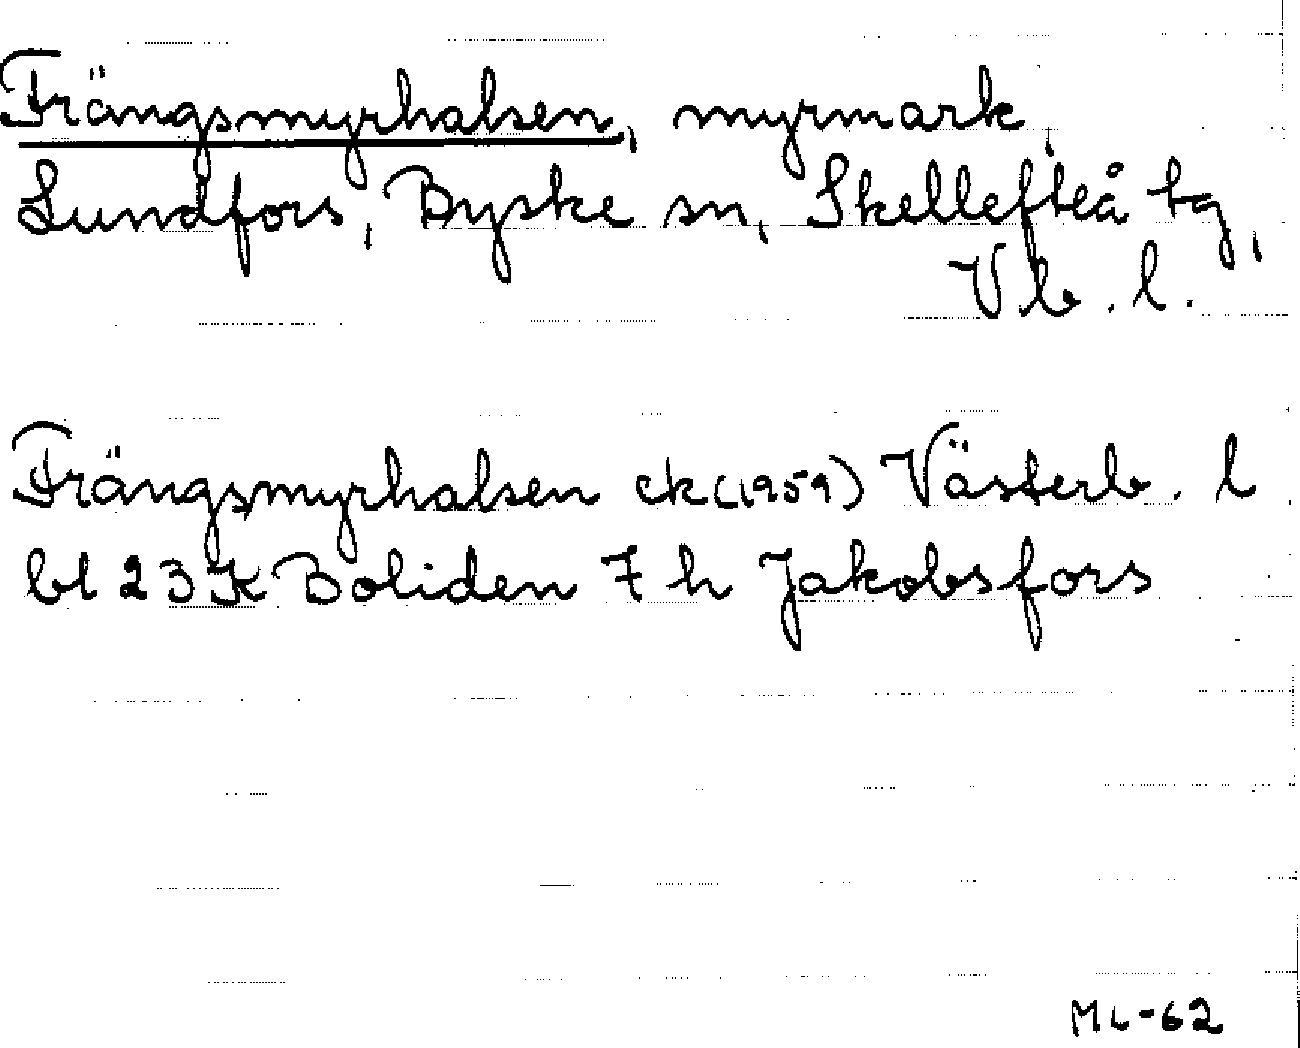 Trängsmyrhalsen, myrmark,
Lundfors, Byske sn, Skellefteå tg,
Vb. l.
Trängsmyrhalsen ek (1959) Västerb. l
bl 23 K Boliden 7 h Jakobsfors
ML-62